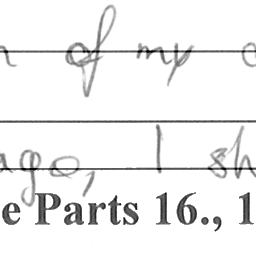 of my
ago, I sh
e Parts 16., 1